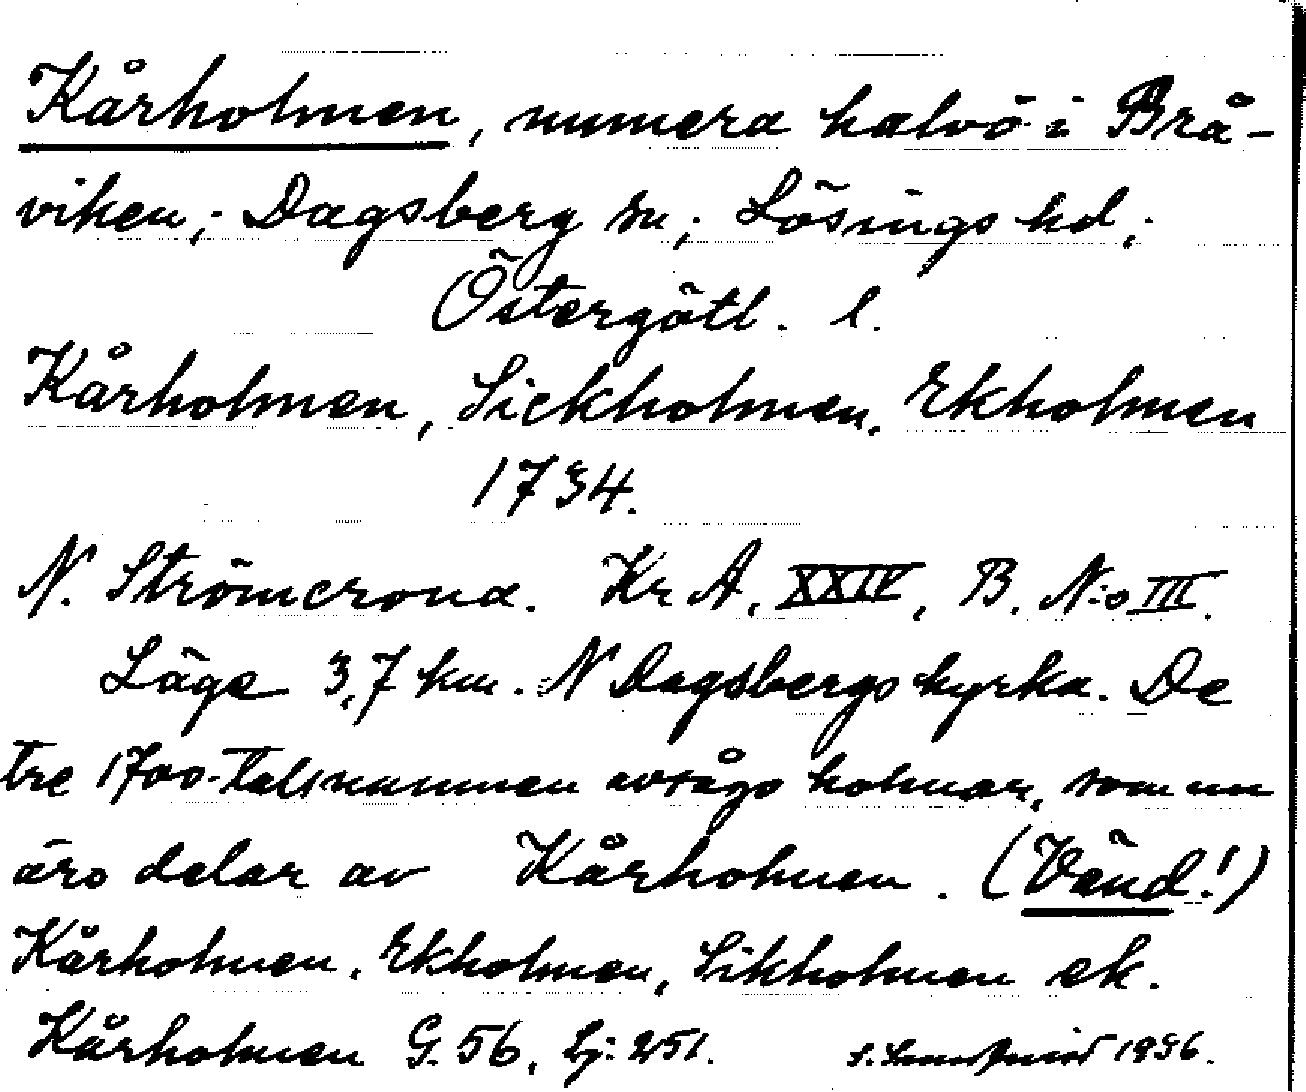 Kårholmen, numera halvö i Brå-
viken; Dagsberg sn; Lösings hd;
Östergötl. l.
Kårholmen, Sickholmen, Ekholmen
1734.
N. Strömcrona. Kr A, XXIV, B. N:o III.
Läge 3,7 km. N Dagsbergs kyrka. De
tre 1700-talsnamnen avsågo holmar, som nu
äro delar av Kårholmen. (Vänd!)
Kårholmen, Ekholmen, Sikholmen ek.
Kårholmen G. 56, bj: 251. 1936.